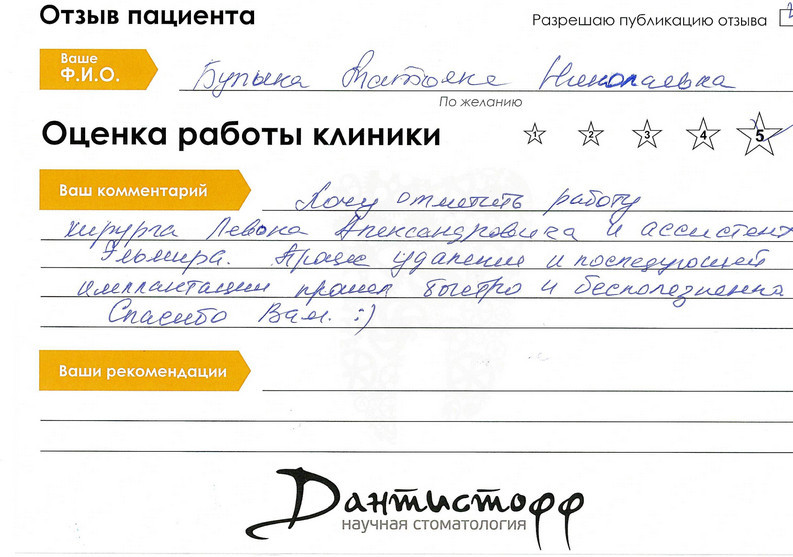 Отзыв пациента
Разрешаю публикацию отзыва
Ваше
Ф.И.О.
Николаевна
По желанию
Оценка работы клиники
1 2 3 4 5
Ваш комментарий
Хочу отметить работу
хирурга Левона Александровича и ассистент
Эльмира. Процес удаления и последующей
имплантации прошел быстро и безболезненно
Спасибо Вам. :)
Ваши рекомендации
Дантистофф
научная стоматология